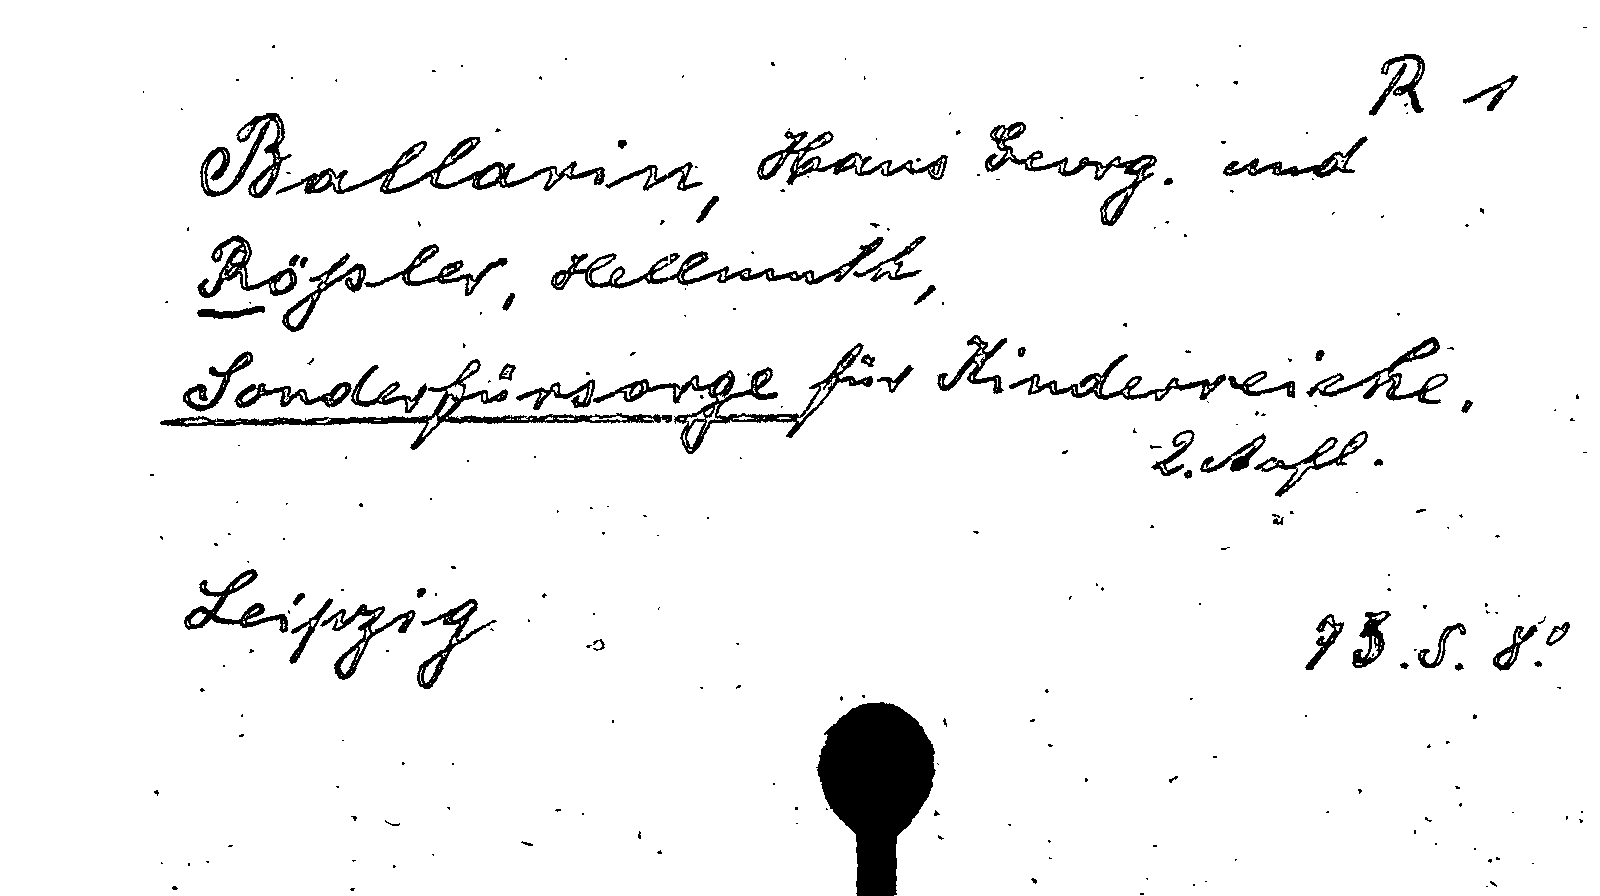 R 1
Ballarin, Hans Georg. und
Rößler, Hellmuth,
Sonderfürsorge für Kinderreiche.
2. Aufl.
Leipzig
73. S. 8°